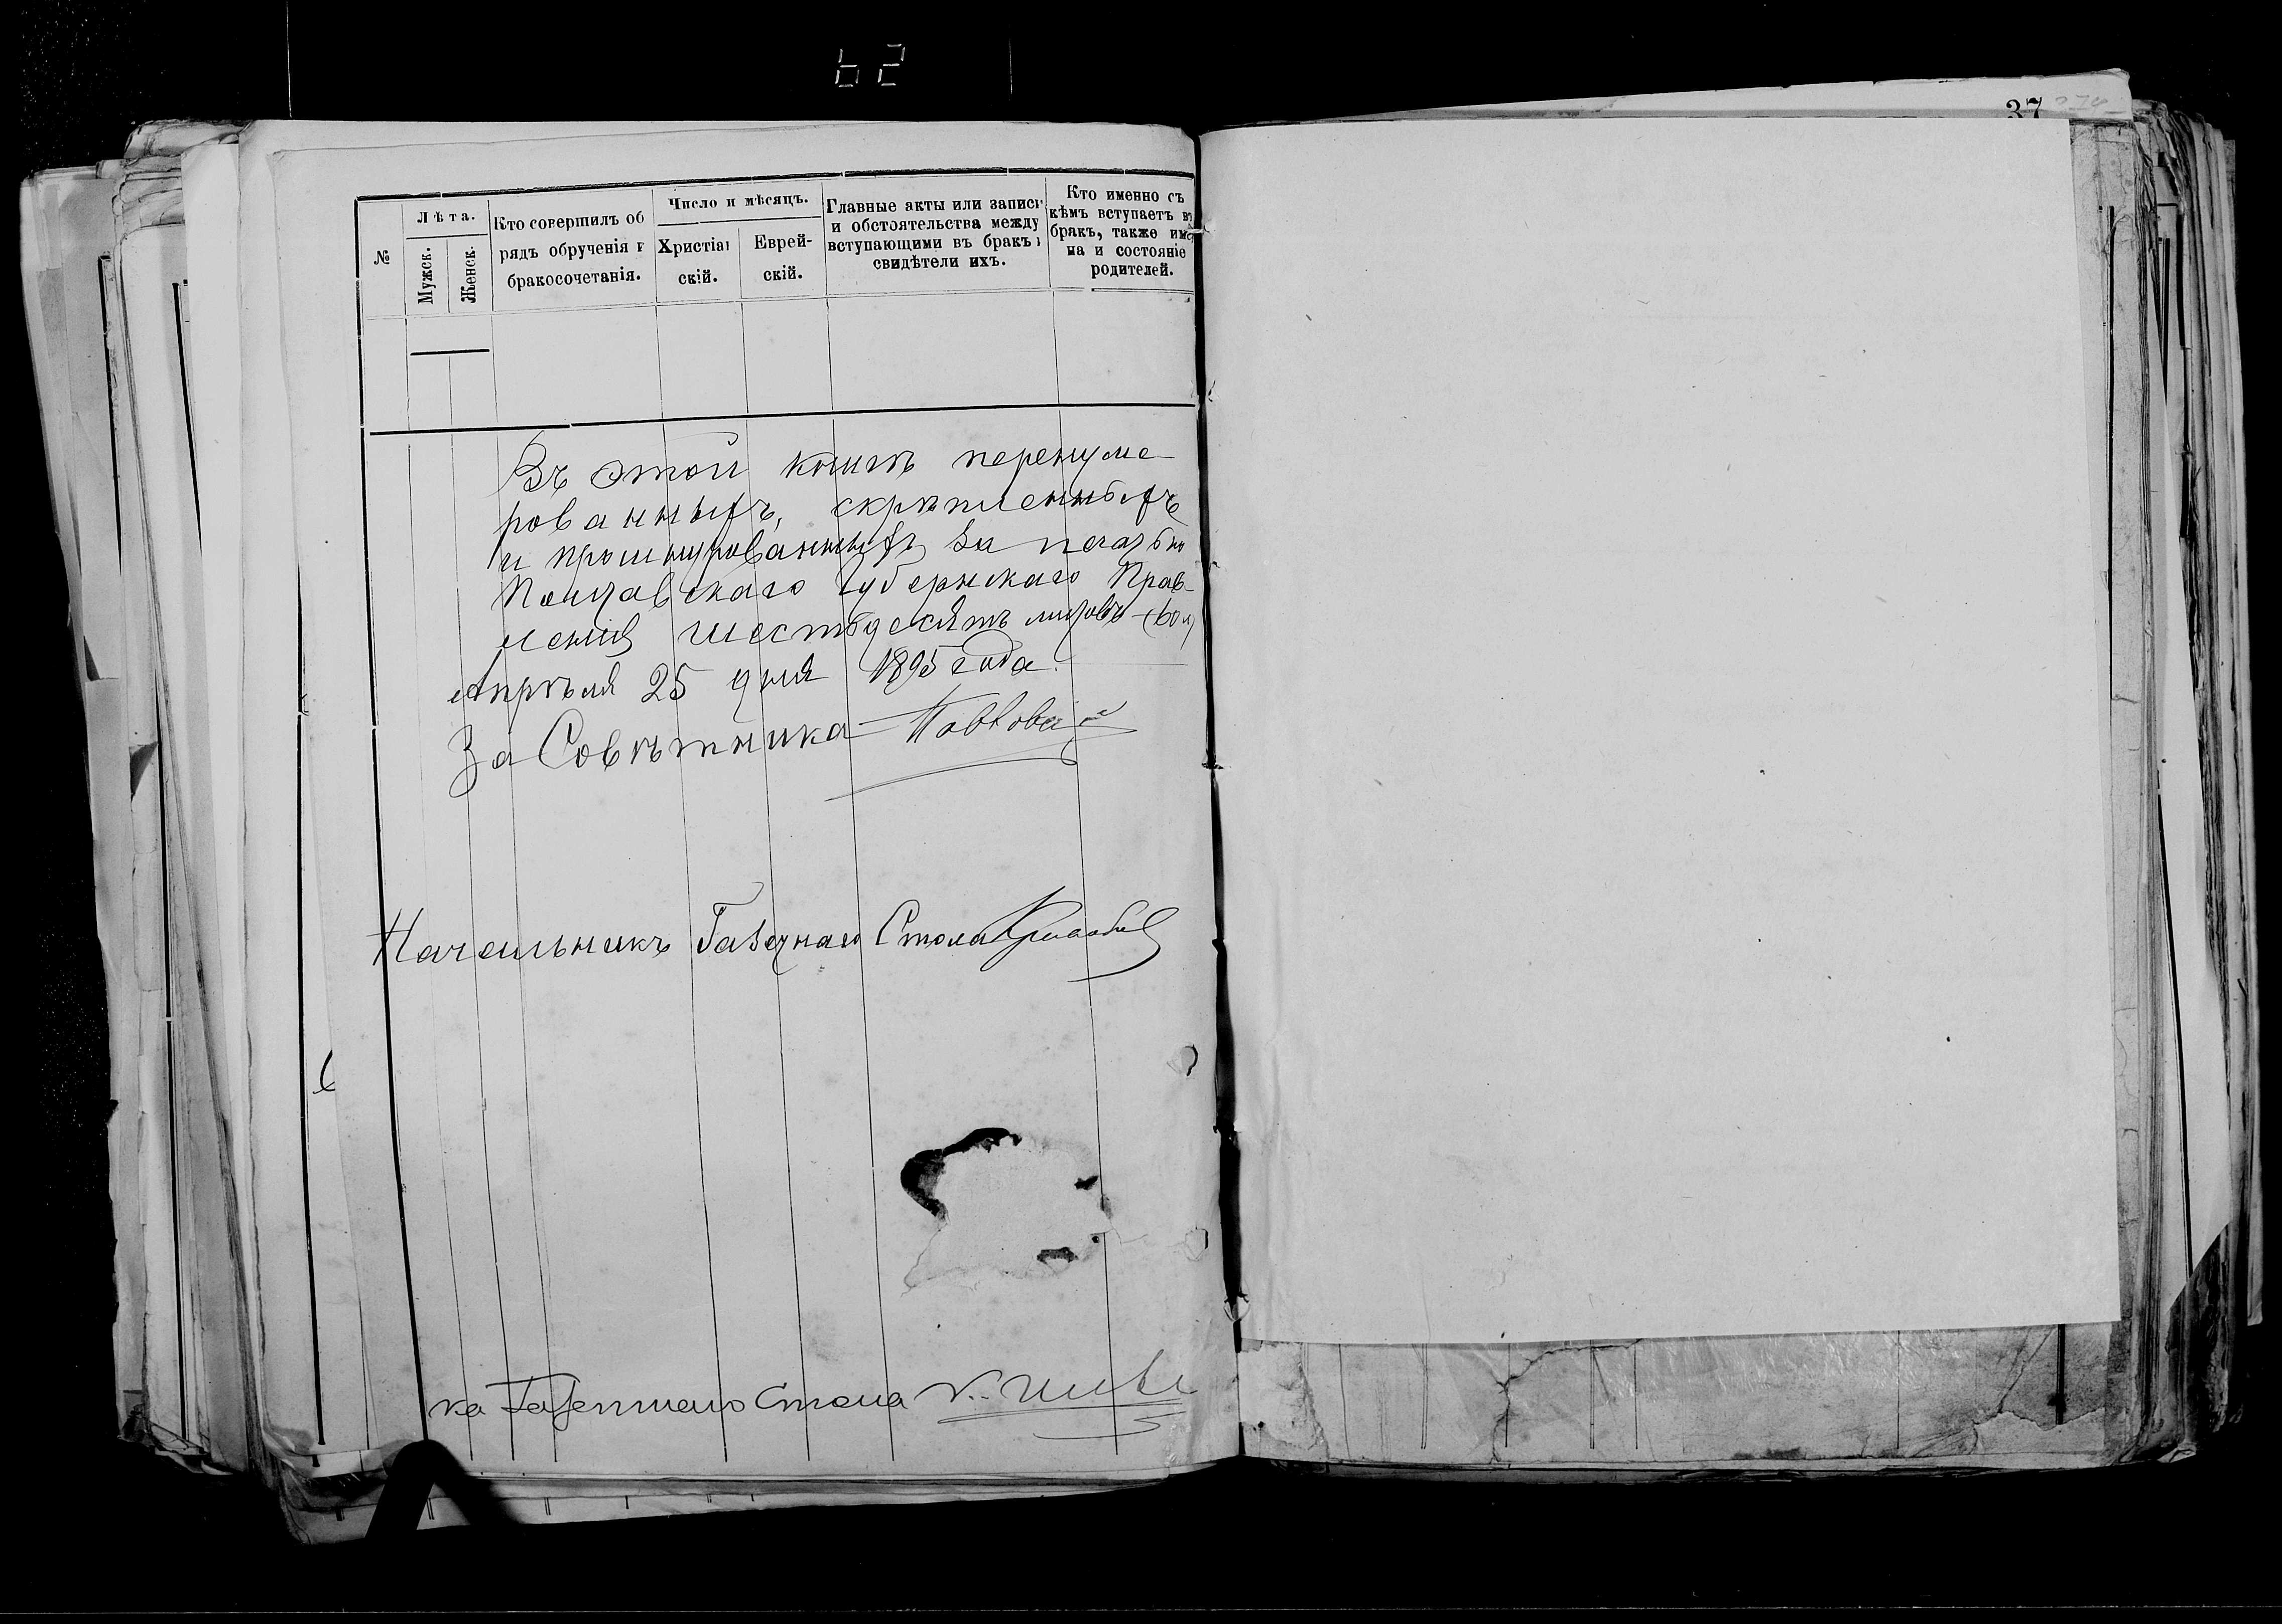 62
37
№
Лѣта.
Мужск.
Женск.
Кто совершилъ об
рядъ обрученія и
бракосочетанія.
Число и мѣсяцъ.
Христіан
скій.
Еврей-
скій.
Главные акты или записи
и обстоятельства между
вступающими въ бракъ и
свидѣтели ихъ.
Кто именно съ
кѣмъ вступаетъ въ
бракъ, также име
на и состояніе
родителей.
Въ этой книгѣ перенуме
рованныхъ, скрѣпленныхъ
и прошнурованныхъ за печатью
Полтавскаго Губернскаго Прав-
ленія шестьдесятъ листовъ (60 л)
Апрѣля 25 дня 1895 года.
За Совѣтника
Начальникъ Газетнаго Стола
ка Газетнаго Стола